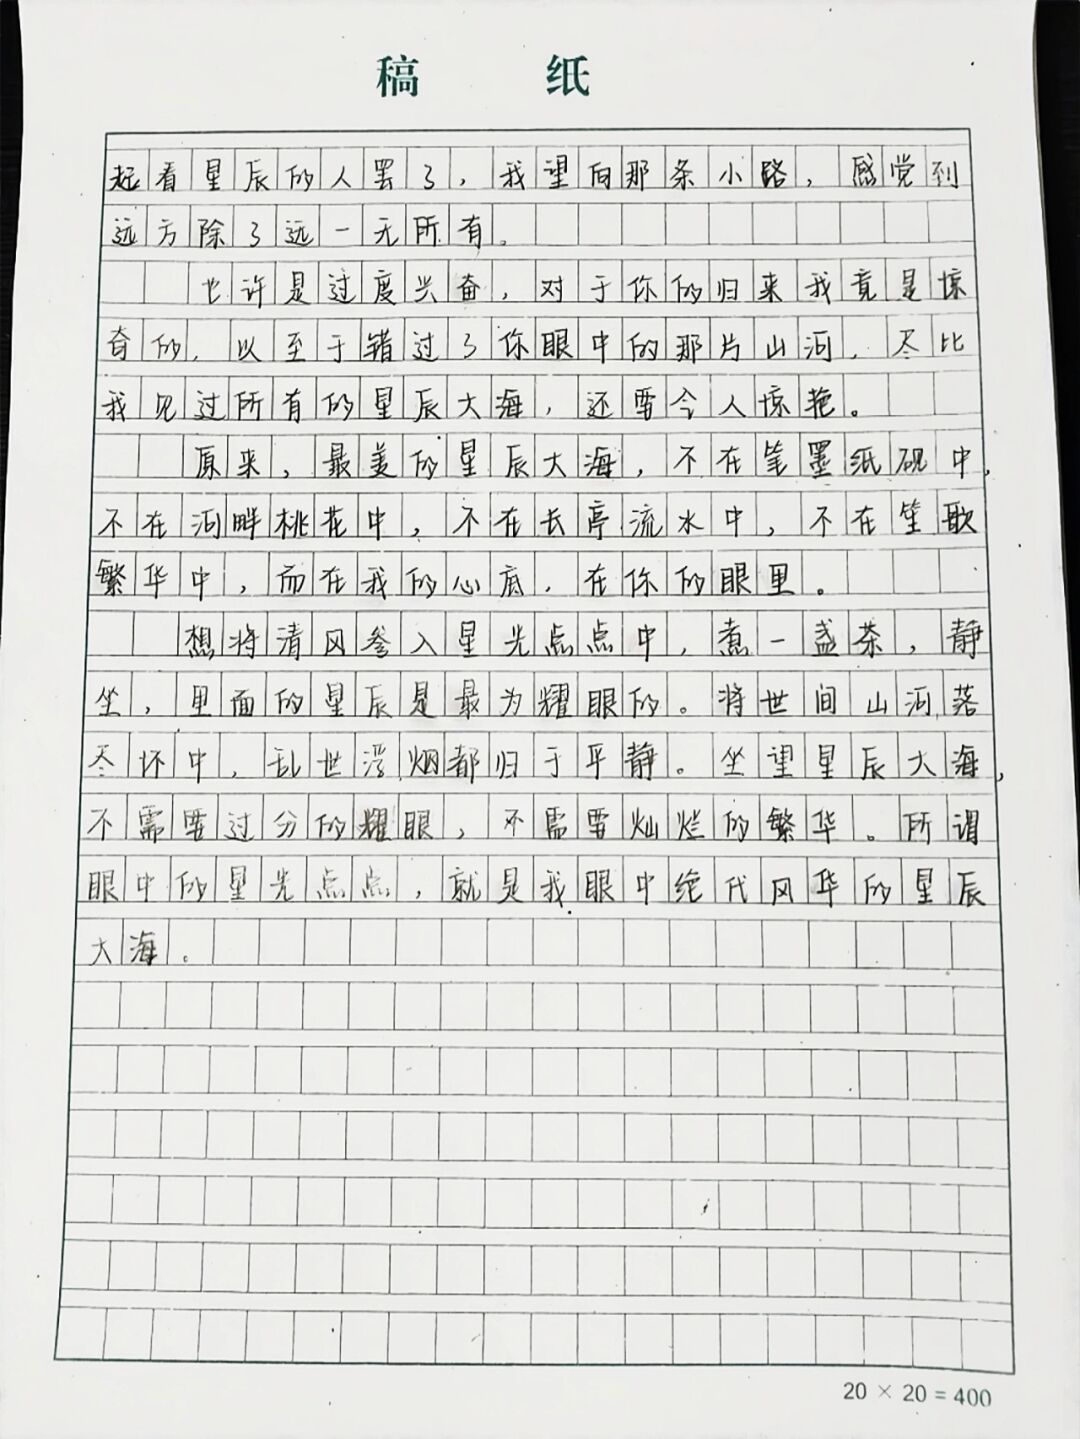 稿 纸
起看星辰的人罢了,我望向那条小路,感觉到
远方除了远一无所有。
也许是过度兴奋,对于你的归来我竟是惊
奇的,以至于错过了你眼中的那片山河,尽比
我见过所有的星辰大海,还要令人惊艳。
原来,最美的星辰大海,不在笔墨纸砚中,
不在河畔桃花中,不在长亭流水中,不在笙歌
繁华中,而在我的心底,在你的眼里。
想将清风参入星光点点中,煮一盏茶,静
坐,里面的星辰是最为耀眼的。将世间山河落
尽怀中,乱世浮烟都归于平静。坐望星辰大海,
不需要过分的耀眼,不需要灿烂的繁华。所谓
眼中的星光点点,就是我眼中绝代风华的星辰
大海。
20×20=400